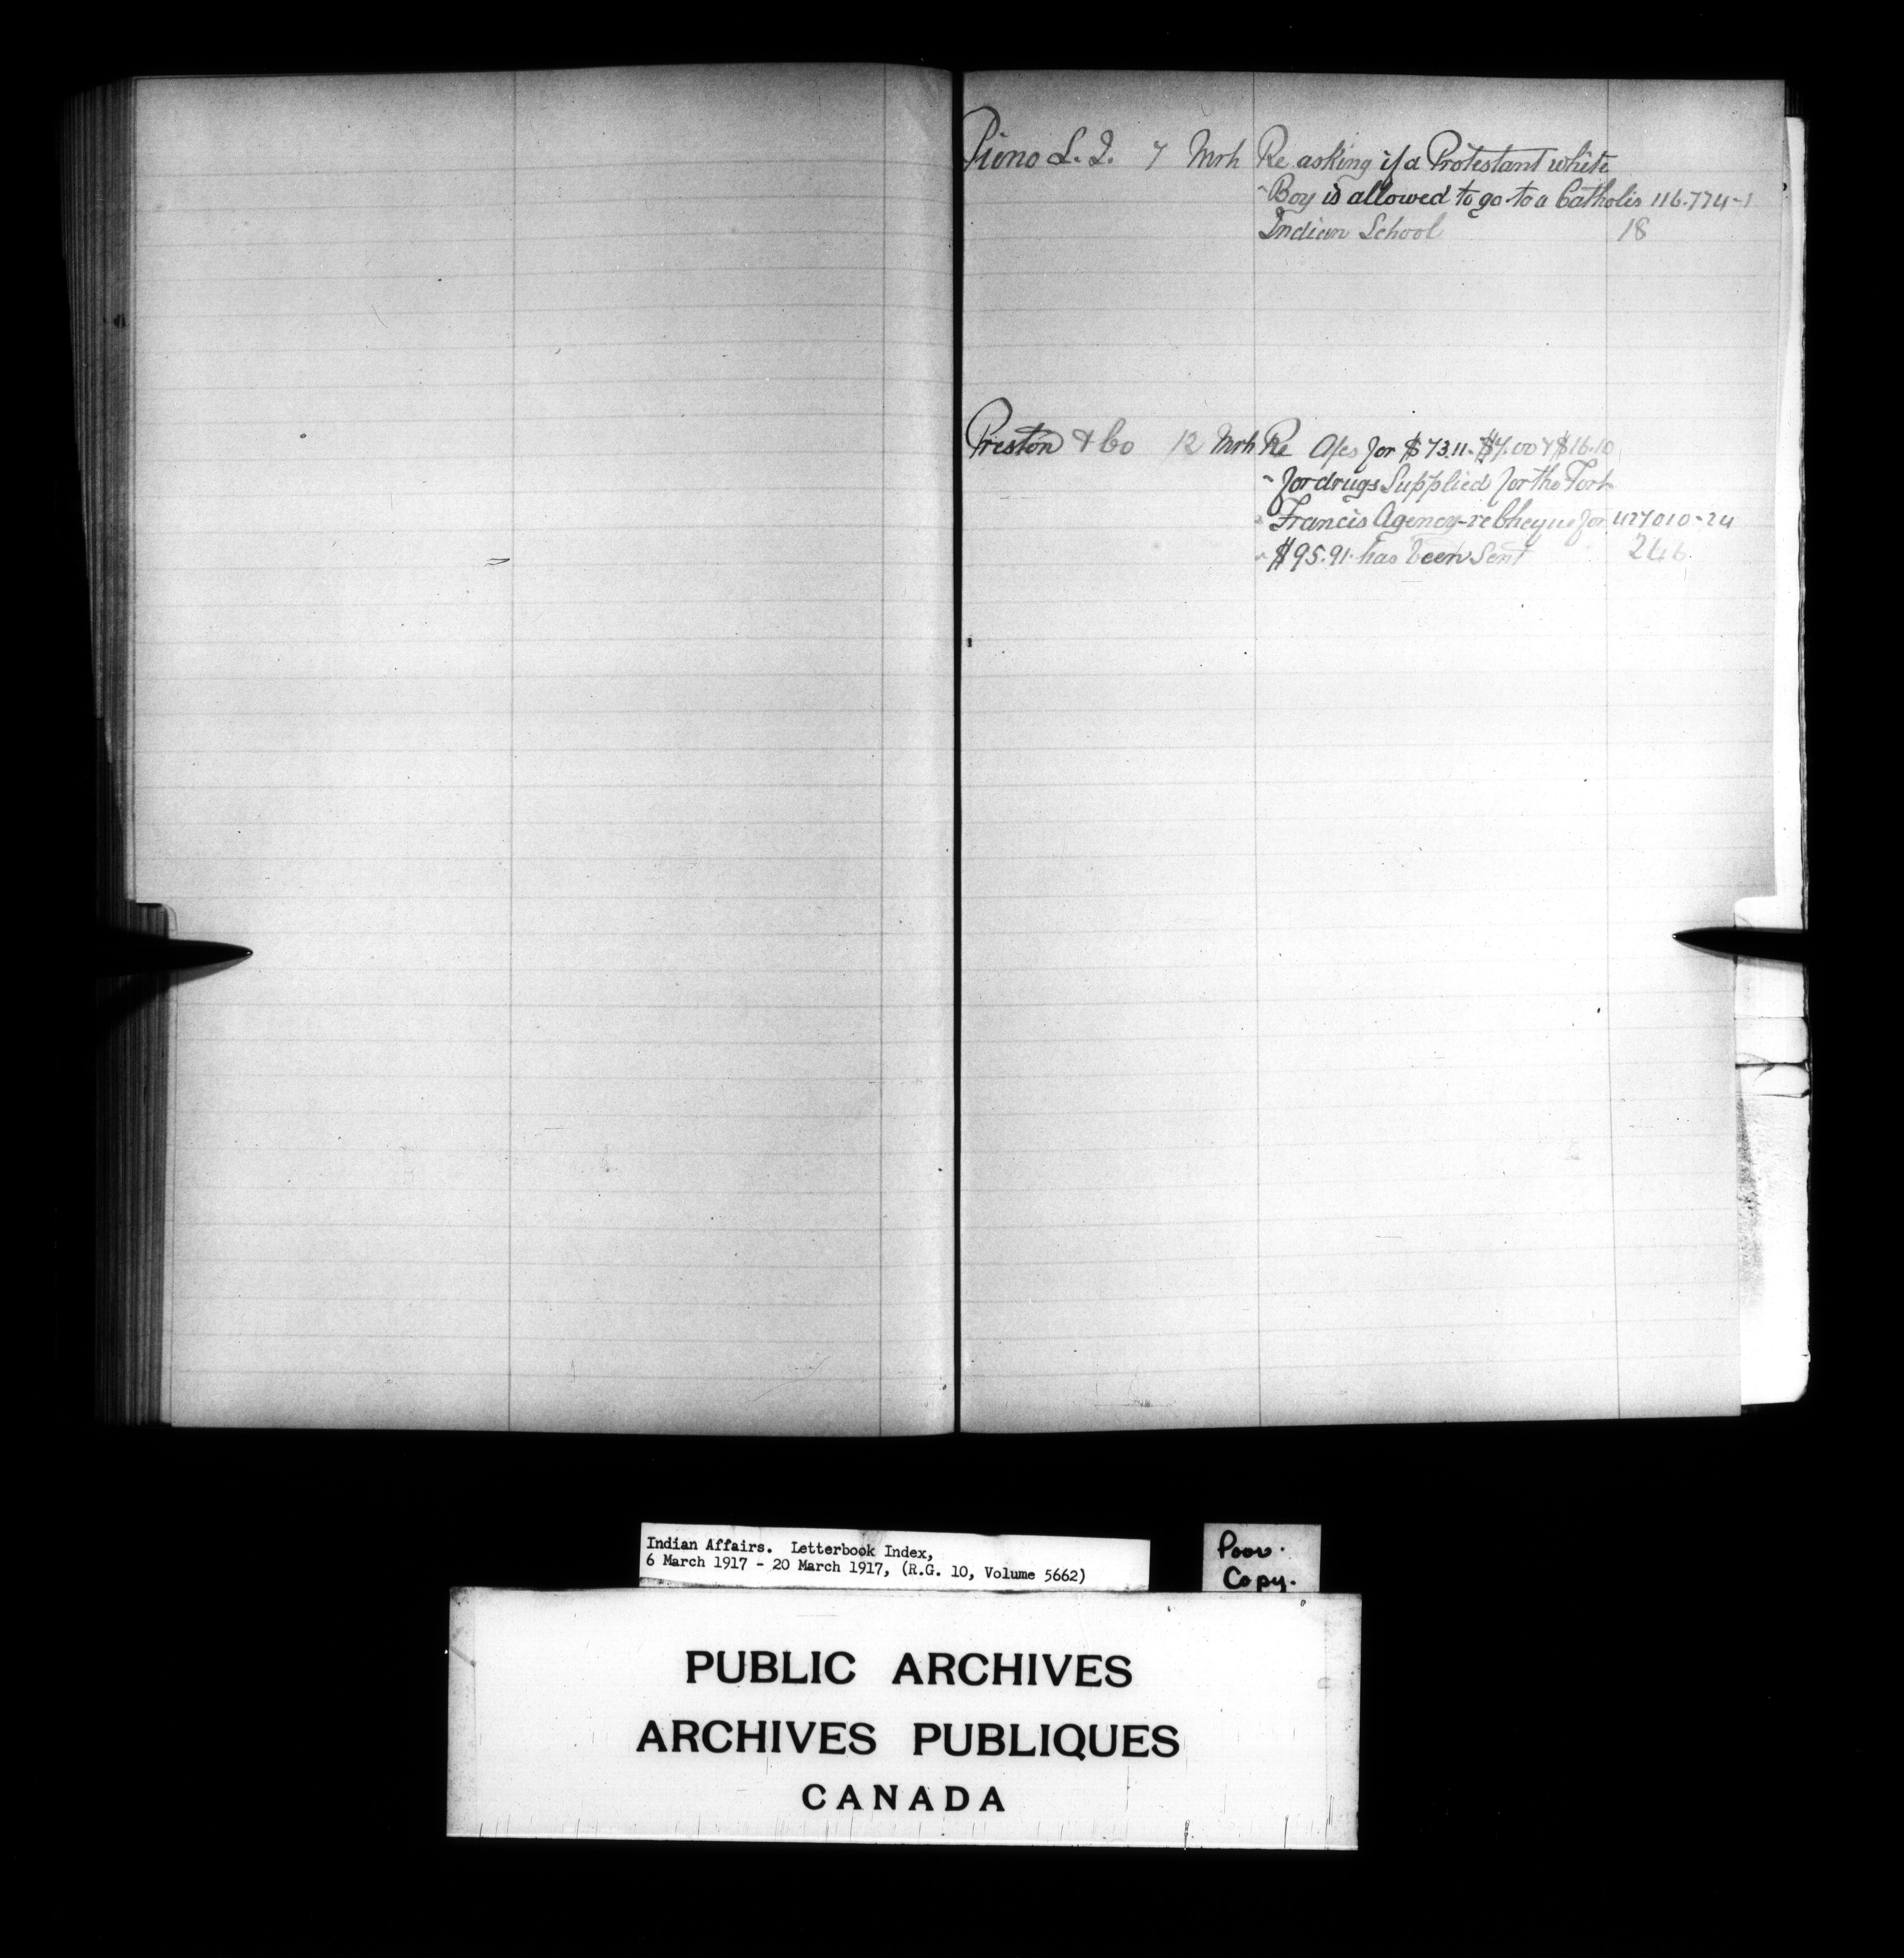 Piono L. I. 7 Mrh Re asking if a Protestant white
Boy is allowed to go to a Catholic 116.774-1
Indian School 18
Preston & Co 12 Mrh Re A/cs for $73.11-$7.00 & $16.10
for drugs Supplied for the Fort
Francis Agency-re Cheque for 427010-24
$95.91 has been Sent 246
Indian Affairs. Letterbook Index,
6 March 1917 - 20 March 1917, (R.G. 10, Volume 5662)
Poor
Copy.
PUBLIC ARCHIVES
ARCHIVES PUBLIQUES
CANADA